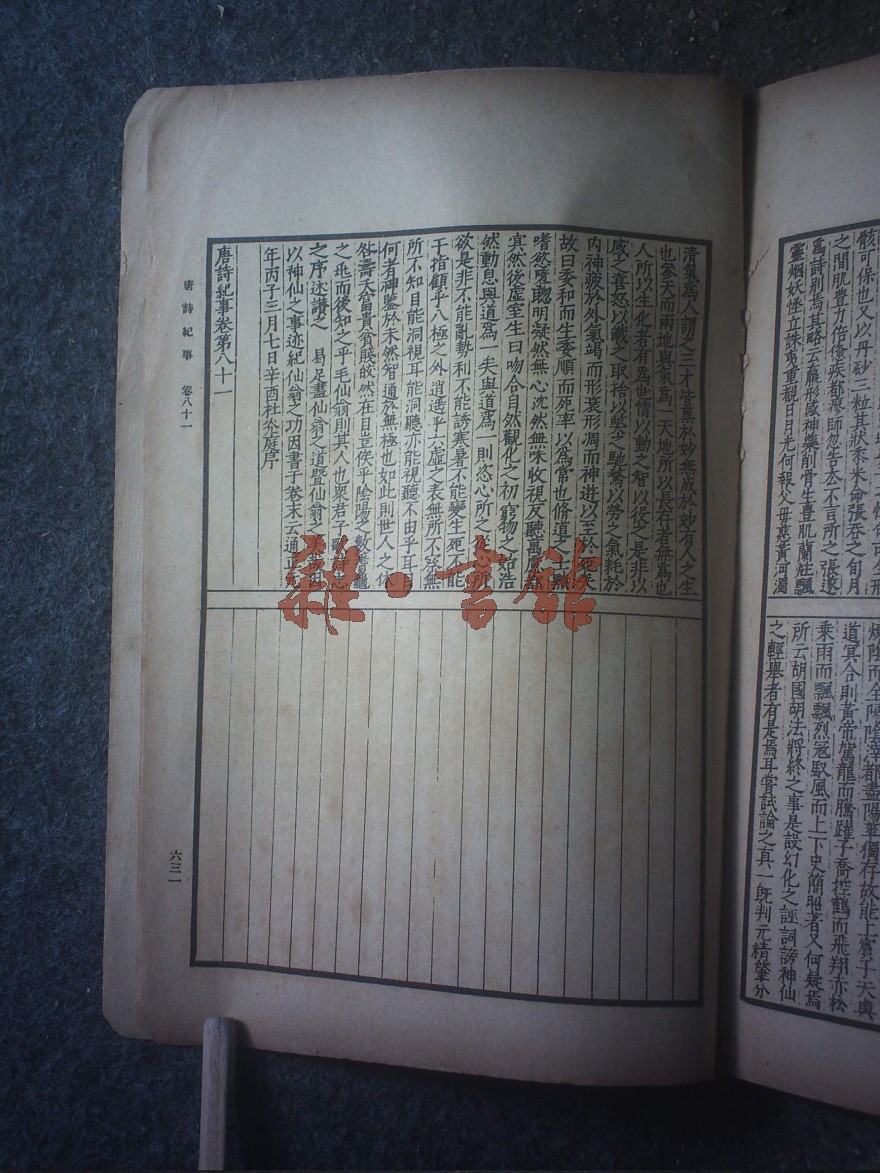 骸可保也又以丹砂三粒其狀黍米命張吞之旬月
之間肌豊力倍僊疾都瘳師勿告去不言所之張遂
爲詩别焉其略云羸形感神藥削骨生豊肌蘭炷飄
靈烟妖怪立誅夷重覩日月光何報父母慈黄河濁
煩陰而全陽陰滓都盡陽華獨存故能上賓于天與
道冥合則黄帝駕龍而騰躍子喬控鶴而飛翔赤松
乘雨而飄飄烈冦馭風而上下史簡昭著又何疑焉
所云胡國胡法將終之事是設幻化之誣詞謗神仙
之輕舉者有是焉耳嘗試論之真一旣判元精肇分
清氣爲人謂之三才皆禀於妙無成於妙有人之生
也參天而兩地與氣爲一天地所以長存者無爲也
人所以生化者有爲也情以動之智以役之是非以
感之喜怒以戰之取捨以
之馳騖以勞之氣耗於
内神疲於外氣竭而形衰形凋而神逝以至於死矣
故曰委和而生委順而死率以爲常也脩道之士
嗜慾廢聰明凝然無心沈然無味收視反聽萬慮
冥然後虚室生白吻合自然觀化之初窮物之始浩
然動息與道爲一矣與道爲一則恣心所之從心所
欲是非不能亂勢利不能誘寒暑不能變生死不能
干指顧乎八極之外逍遥乎六虚之表無所不察無
所不知目能洞視耳能洞聽亦能視聽不由乎耳目
何者神鑒於未然智通於無極也如此則世人之休
咎壽夭富貴貧賤皎然在目豈俟乎陰陽之數蓍龜
之兆而後知之乎毛仙翁則其人也衆君子
之序述讚之 易足盡仙翁之道曁仙翁之美哉因
以神仙之事迹紀仙翁之功因書于卷末云通正元
年丙子三月七日辛酉杜光庭序
唐詩紀事卷第八十一
唐詩紀事 卷八十一
六三一
雜·書館